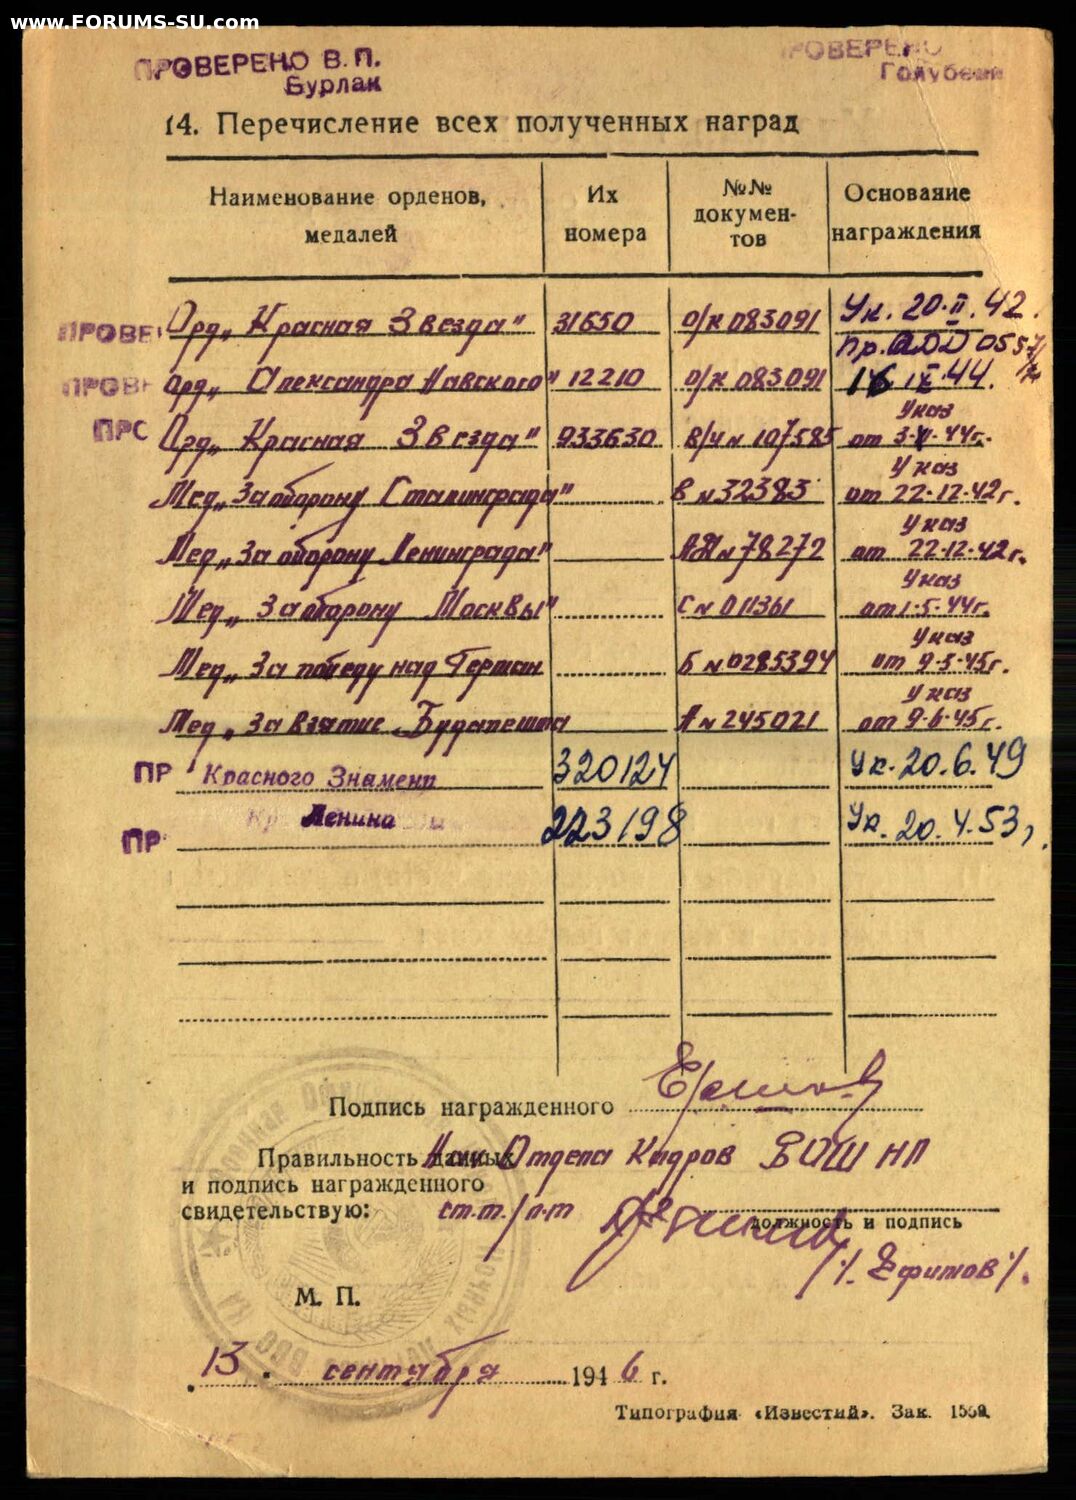 www.FORUMS-SU.com
ПРОВЕРЕНО В. П.
Бурлак
ПРОВЕРЕНО
14. Перечисление всех полученных наград
Наименование орденов, медалей
Их номера
№№ докумен- тов
Основание награждения
ПРОВЕ Орд. „Красная Звезда" 31650 о/к 083091 Ук. 20.II.42.
Пр. АДД 0557/
ПРОВЕ Орд. „Александра Навского" 12210 о/к 083091 16 IX 44.
ПРО Орд. „Красная Звезда" 933630 В/ч № 107585 Указ от 3·XI·44г.
Мед. „За оборону Сталинграда" В №32383 Указ от 22·12·42г.
Мед. „За оборону Ленинграда" АЖ №78272 Указ от 22·12·42г.
Мед. „За оборону Москвы" С № 011361 Указ от 1·5·44г.
Мед. „За победу над Герман. Б №0285394 Указ от 9·5·45г.
Мед. „За взятие Будапешта А №245021 Указ от 9·6·45г.
ПР Красного Знамени 320124 Ук. 20.6.49
ПР Ленина 223198 Ук. 20.4.53г.
Подпись награжденного
Правильность данных Нач Отдела Кадров ВОШ НЛ
и подпись награжденного
свидетельствую: ст. т. л-т
должность и подпись
/Ефимов/.
М. П.
13 сентября 1946 г.
Типография «Известий». Зак. 1559.